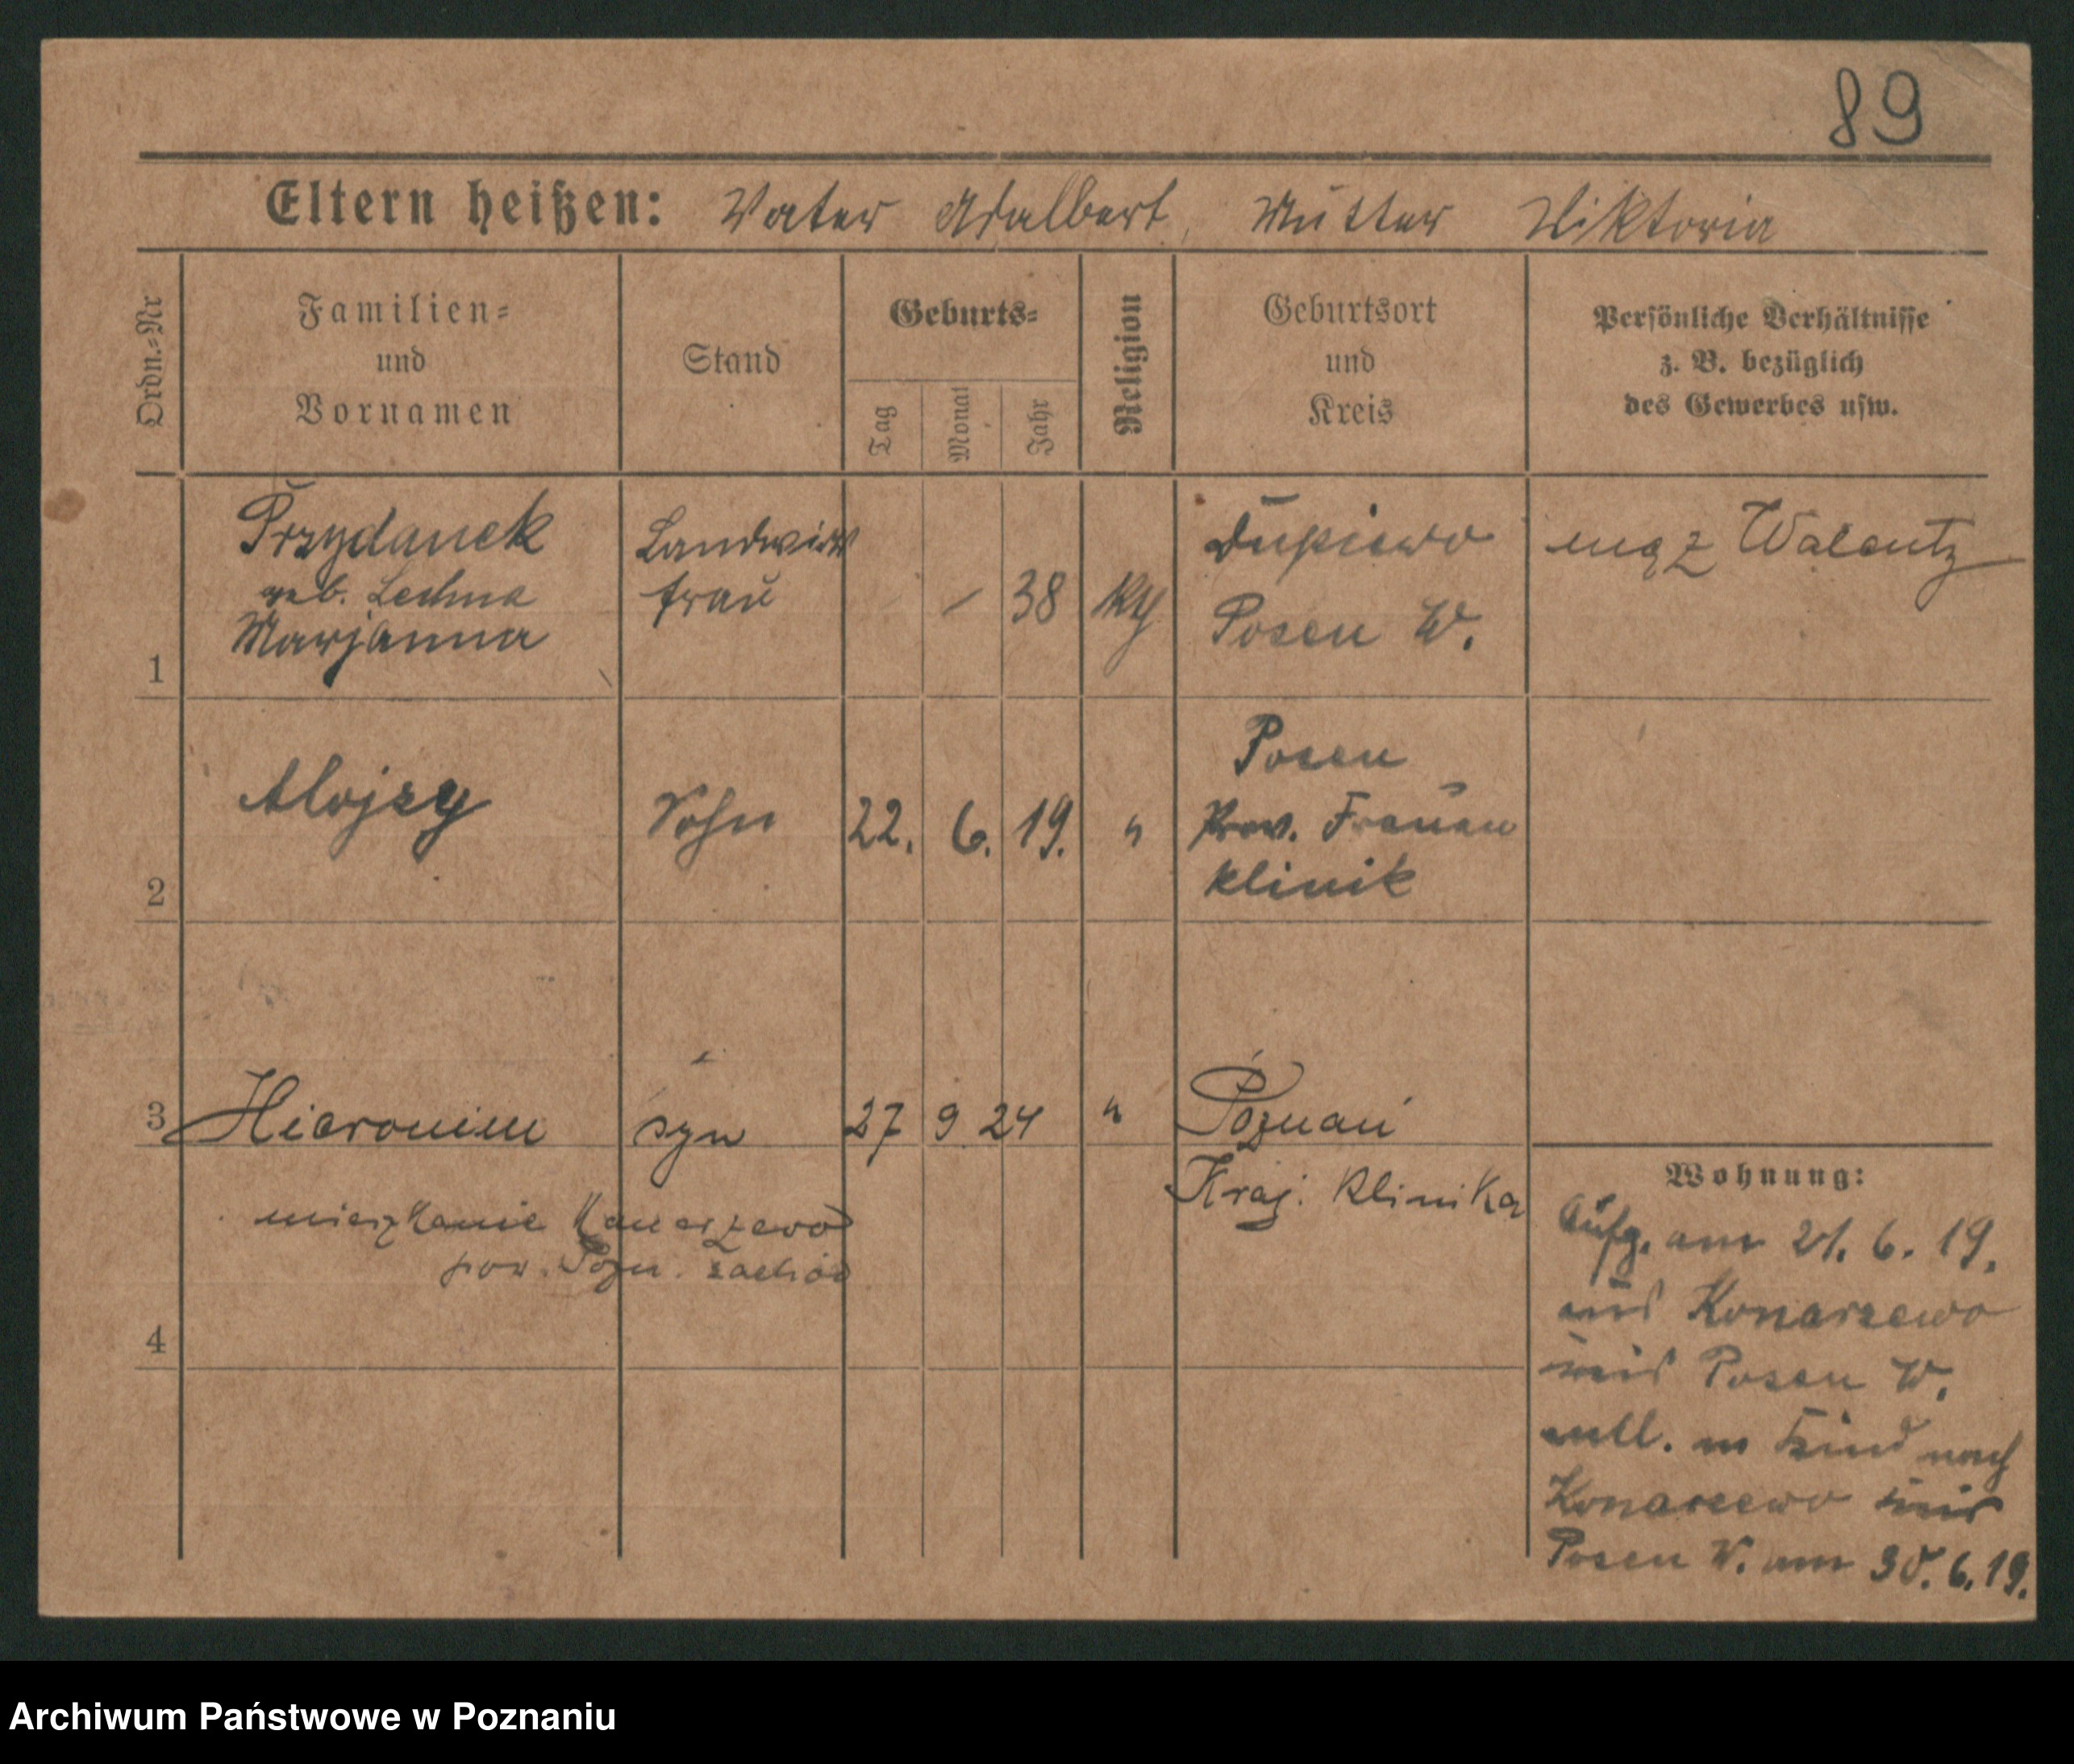 89
Eltern heißen: Vater Adalbert, Mutter Viktoria
Ordn.-Nr
Familien-
und
Vornamen
Stand
Geburts-
Tag
Monat
Jahr
Religion
Geburtsort
und
Kreis
Persönliche Verhältnisse
z. B. bezüglich
des Gewerbes usw.
1
Przydanek
geb. Lechna
Marjanna
Landwirt
frau
/ 38
Dupiewo
Posen W.
mąż Walenty
2
Alojzy
Sohn
22. 6. 19.
"
Posen
Prov. Frauen
klinik
3
Hieronim
syn
27 9 24
"
Poznań
Kraj. Klinika
mieszkanie Konarzewo
pow. Pozn. zachód
4
Wohnung:
Aufg. am 21. 6. 19.
aus Konarzewo
Posen W.
entl. m Kind nach
Konarzewo
Posen W. am 30. 6. 19.
Archiwum Państwowe w Poznaniu